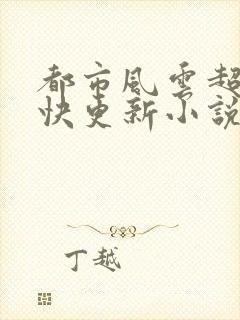 都市風雲超
快更新小說
丁越